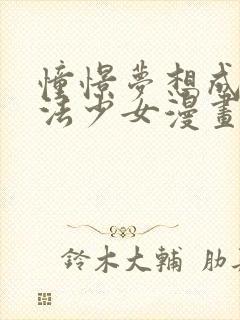 憧憬夢想成
法少女漫畫
鈴木大輔 肋